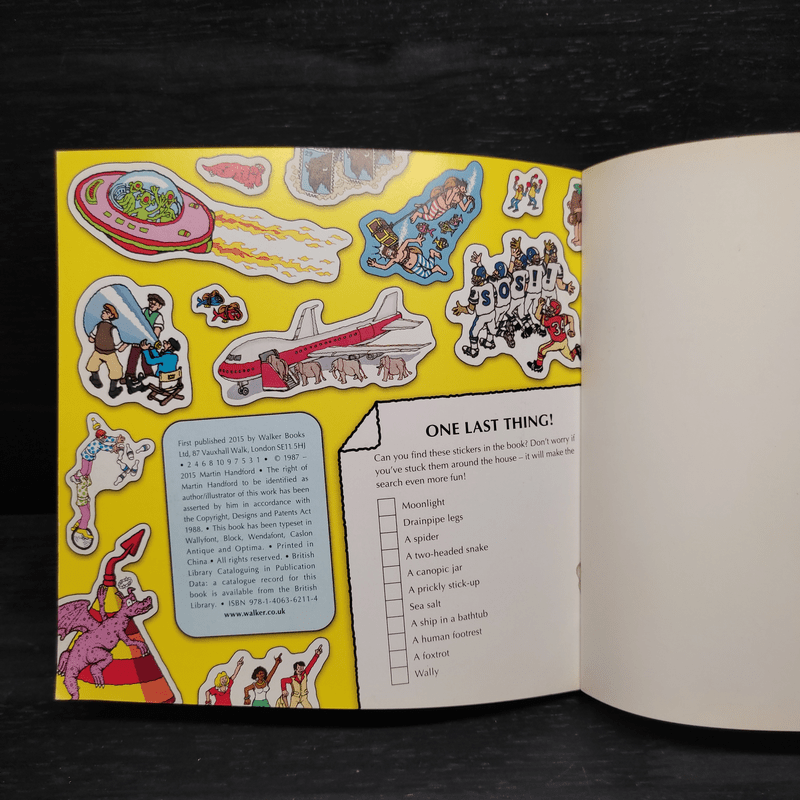 SOS!!
33
First published 2015 by Walker Books
Ltd, 87 Vauxhall Walk, London SE11 5HJ
• 2 4 6 8 10 9 7 5 3 1 • © 1987 –
2015 Martin Handford • The right of
Martin Handford to be identified as
author/illustrator of this work has been
asserted by him in accordance with
the Copyright, Designs and Patents Act
1988. • This book has been typeset in
Wallyfont, Block, Wendafont, Caslon
Antique and Optima. • Printed in
China • All rights reserved. • British
Library Cataloguing in Publication
Data: a catalogue record for this
book is available from the British
Library. • ISBN 978-1-4063-6211-4
www.walker.co.uk
ONE LAST THING!
Can you find these stickers in the book? Don't worry if
you've stuck them around the house – it will make the
search even more fun!
Moonlight
Drainpipe legs
A spider
A two-headed snake
A canopic jar
A prickly stick-up
Sea salt
A ship in a bathtub
A human footrest
A foxtrot
Wally